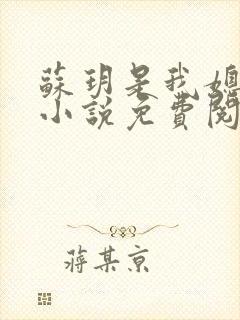 蘇玥是我
小說免費閱
蔣某京